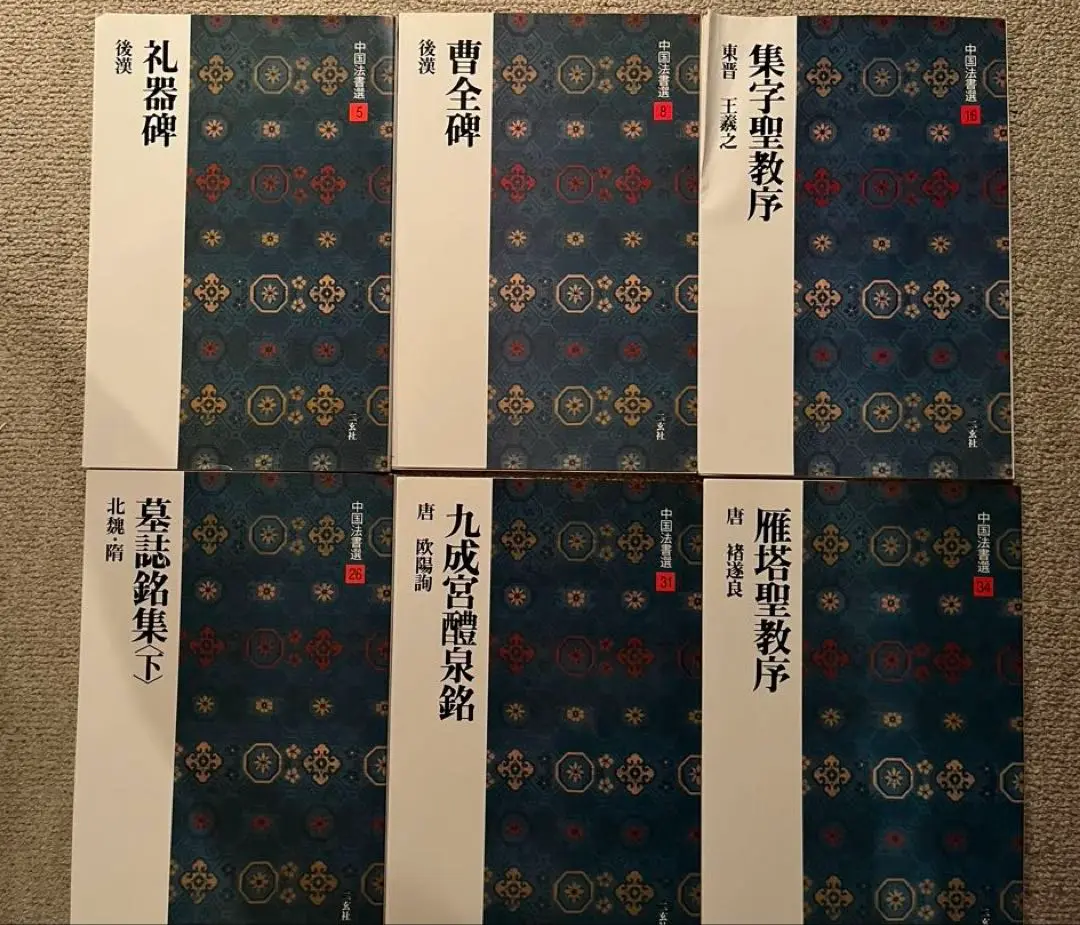 中国法書選
5
礼器碑
後漢
二玄社
中国法書選
8
曹全碑
後漢
二玄社
中国法書選
16
集字聖教序
東晋 王羲之
二玄社
中国法書選
26
墓誌銘集〈下〉
北魏・隋
二玄社
中国法書選
31
九成宮醴泉銘
唐 欧陽詢
二玄
中国法書選
34
雁塔聖教序
唐 褚遂良
二玄